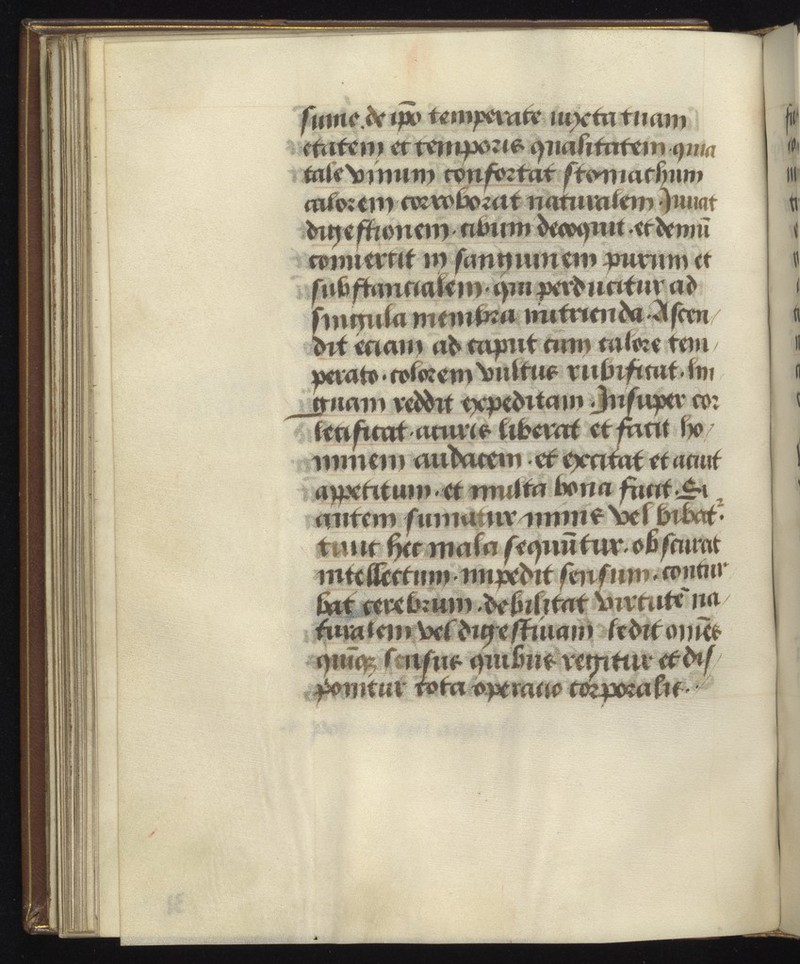 sume. de ip̄o temperate iuxta tuam
etatem et temporis qualitatem. quia
tale vinum confortat stomachum
calorem corroborat naturalem. Juuat
digestionem. cibum decoquit. et demū
conuertit in sanguinem purum et
substancialem. qui perducitur ad
singula membra nutrienda. Ascen/
dit eciam ad caput cum calore tem/
perato. colorem vultus rubificat. lin
guam reddit expeditam. Insuper cor
letificat. a curis liberat et facit ho/
minem audacem. et excitat et acuit
appetitum. et multa bona facit. Si
autem sumatur nimis vel bibat᷑.
tunc hec mala sequūtur. obscurat
intellectum. impedit sensum. contur
bat cerebrum. debilitat virtutē na/
turalem vel digestiuam ledit om̄es
quīq; sensus quibus regitur et dis/
ponitur tota operatio corporalis.